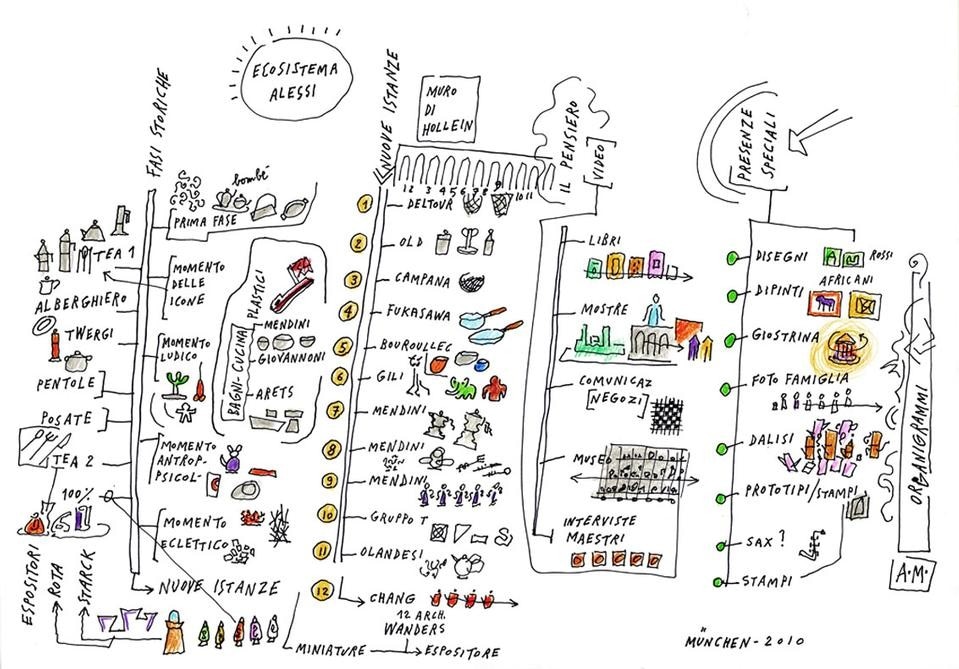 ECOSISTEMA
ALESSI
FASI STORICHE
bombé
PRIMA FASE
TEA 1
MOMENTO
DELLE
ICONE
ALBERGHIERO
TWERGI
MOMENTO
LUDICO
PENTOLE
POSATE
TEA 2
MOMENTO
ANTROP-
PSICOL-
100%
MOMENTO
ECLETTICO
ESPOSITORI
ROTA
STARCK
NUOVE ISTANZE
BAGNI-CUCINA
PLASTICI
MENDINI
GIOVANNONI
ARETS
NUOVE ISTANZE
MURO
DI
HOLLEIN
1 2 3 4 5 6 7 8 9 10 11
1 DELTOUR
2 OLD
3 CAMPANA
4 FUKASAWA
5 BOUROULLEC
6 GILI
7 MENDINI
8 MENDINI
9 MENDINI
10 GRUPPO T
11 OLANDESI
12 CHANG
12 ARCH.
WANDERS
MINIATURE
ESPOSITORE
IL PENSIERO
VIDEO
LIBRI
MOSTRE
COMUNICAZ
NEGOZI
MUSEO
INTERVISTE
MAESTRI
PRESENZE
SPECIALI
DISEGNI
ROSSI
AFRICANI
DIPINTI
GIOSTRINA
FOTO FAMIGLIA
DALISI
PROTOTIPI/STAMPI
SAX?
STAMPI
ORGANIGRAMMI
A.M.
MÜNCHEN-2010